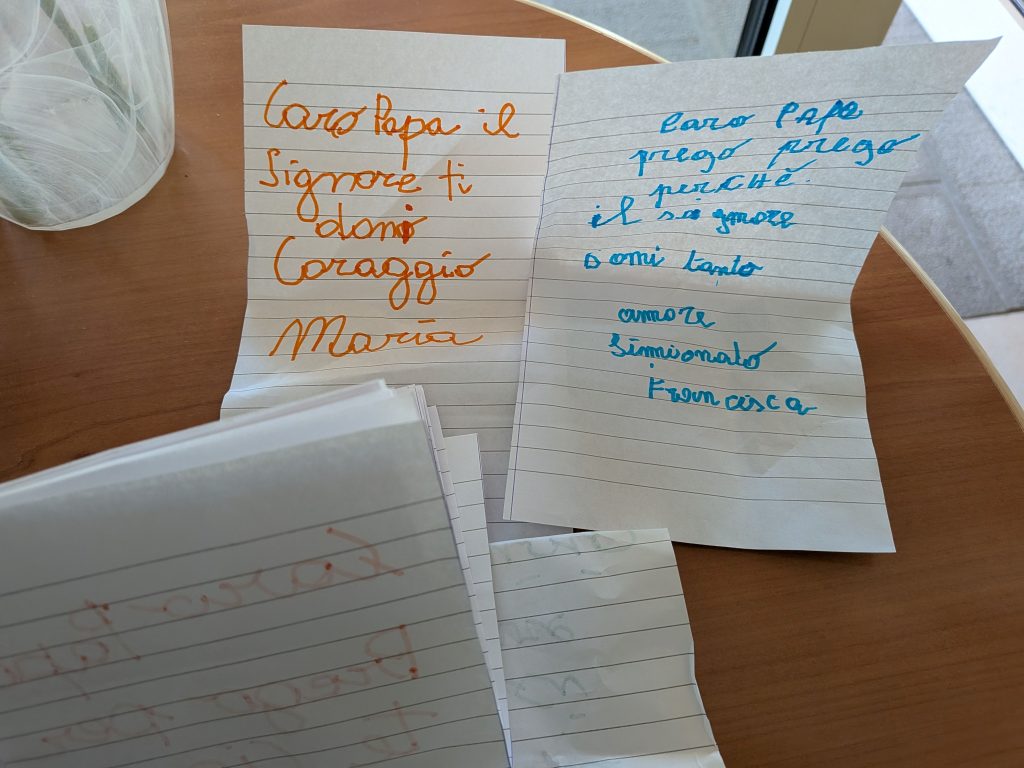 Caro Papa il
Signore ti
doni
Coraggio
Maria
Caro PAPA
prego prego
perCHÈ.
il signore
Domi tanto
amore
Simionato
Francisca
Caro
Prego per
t